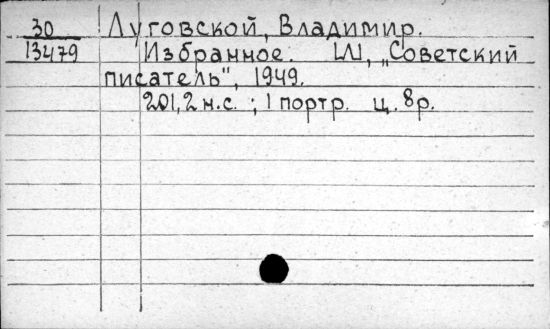 30 Луговской, Владимир.
13479 Избранное. [М], „Советский
писатель", 1949.
201,2 н.с. ; 1 портр. ц. 8р.